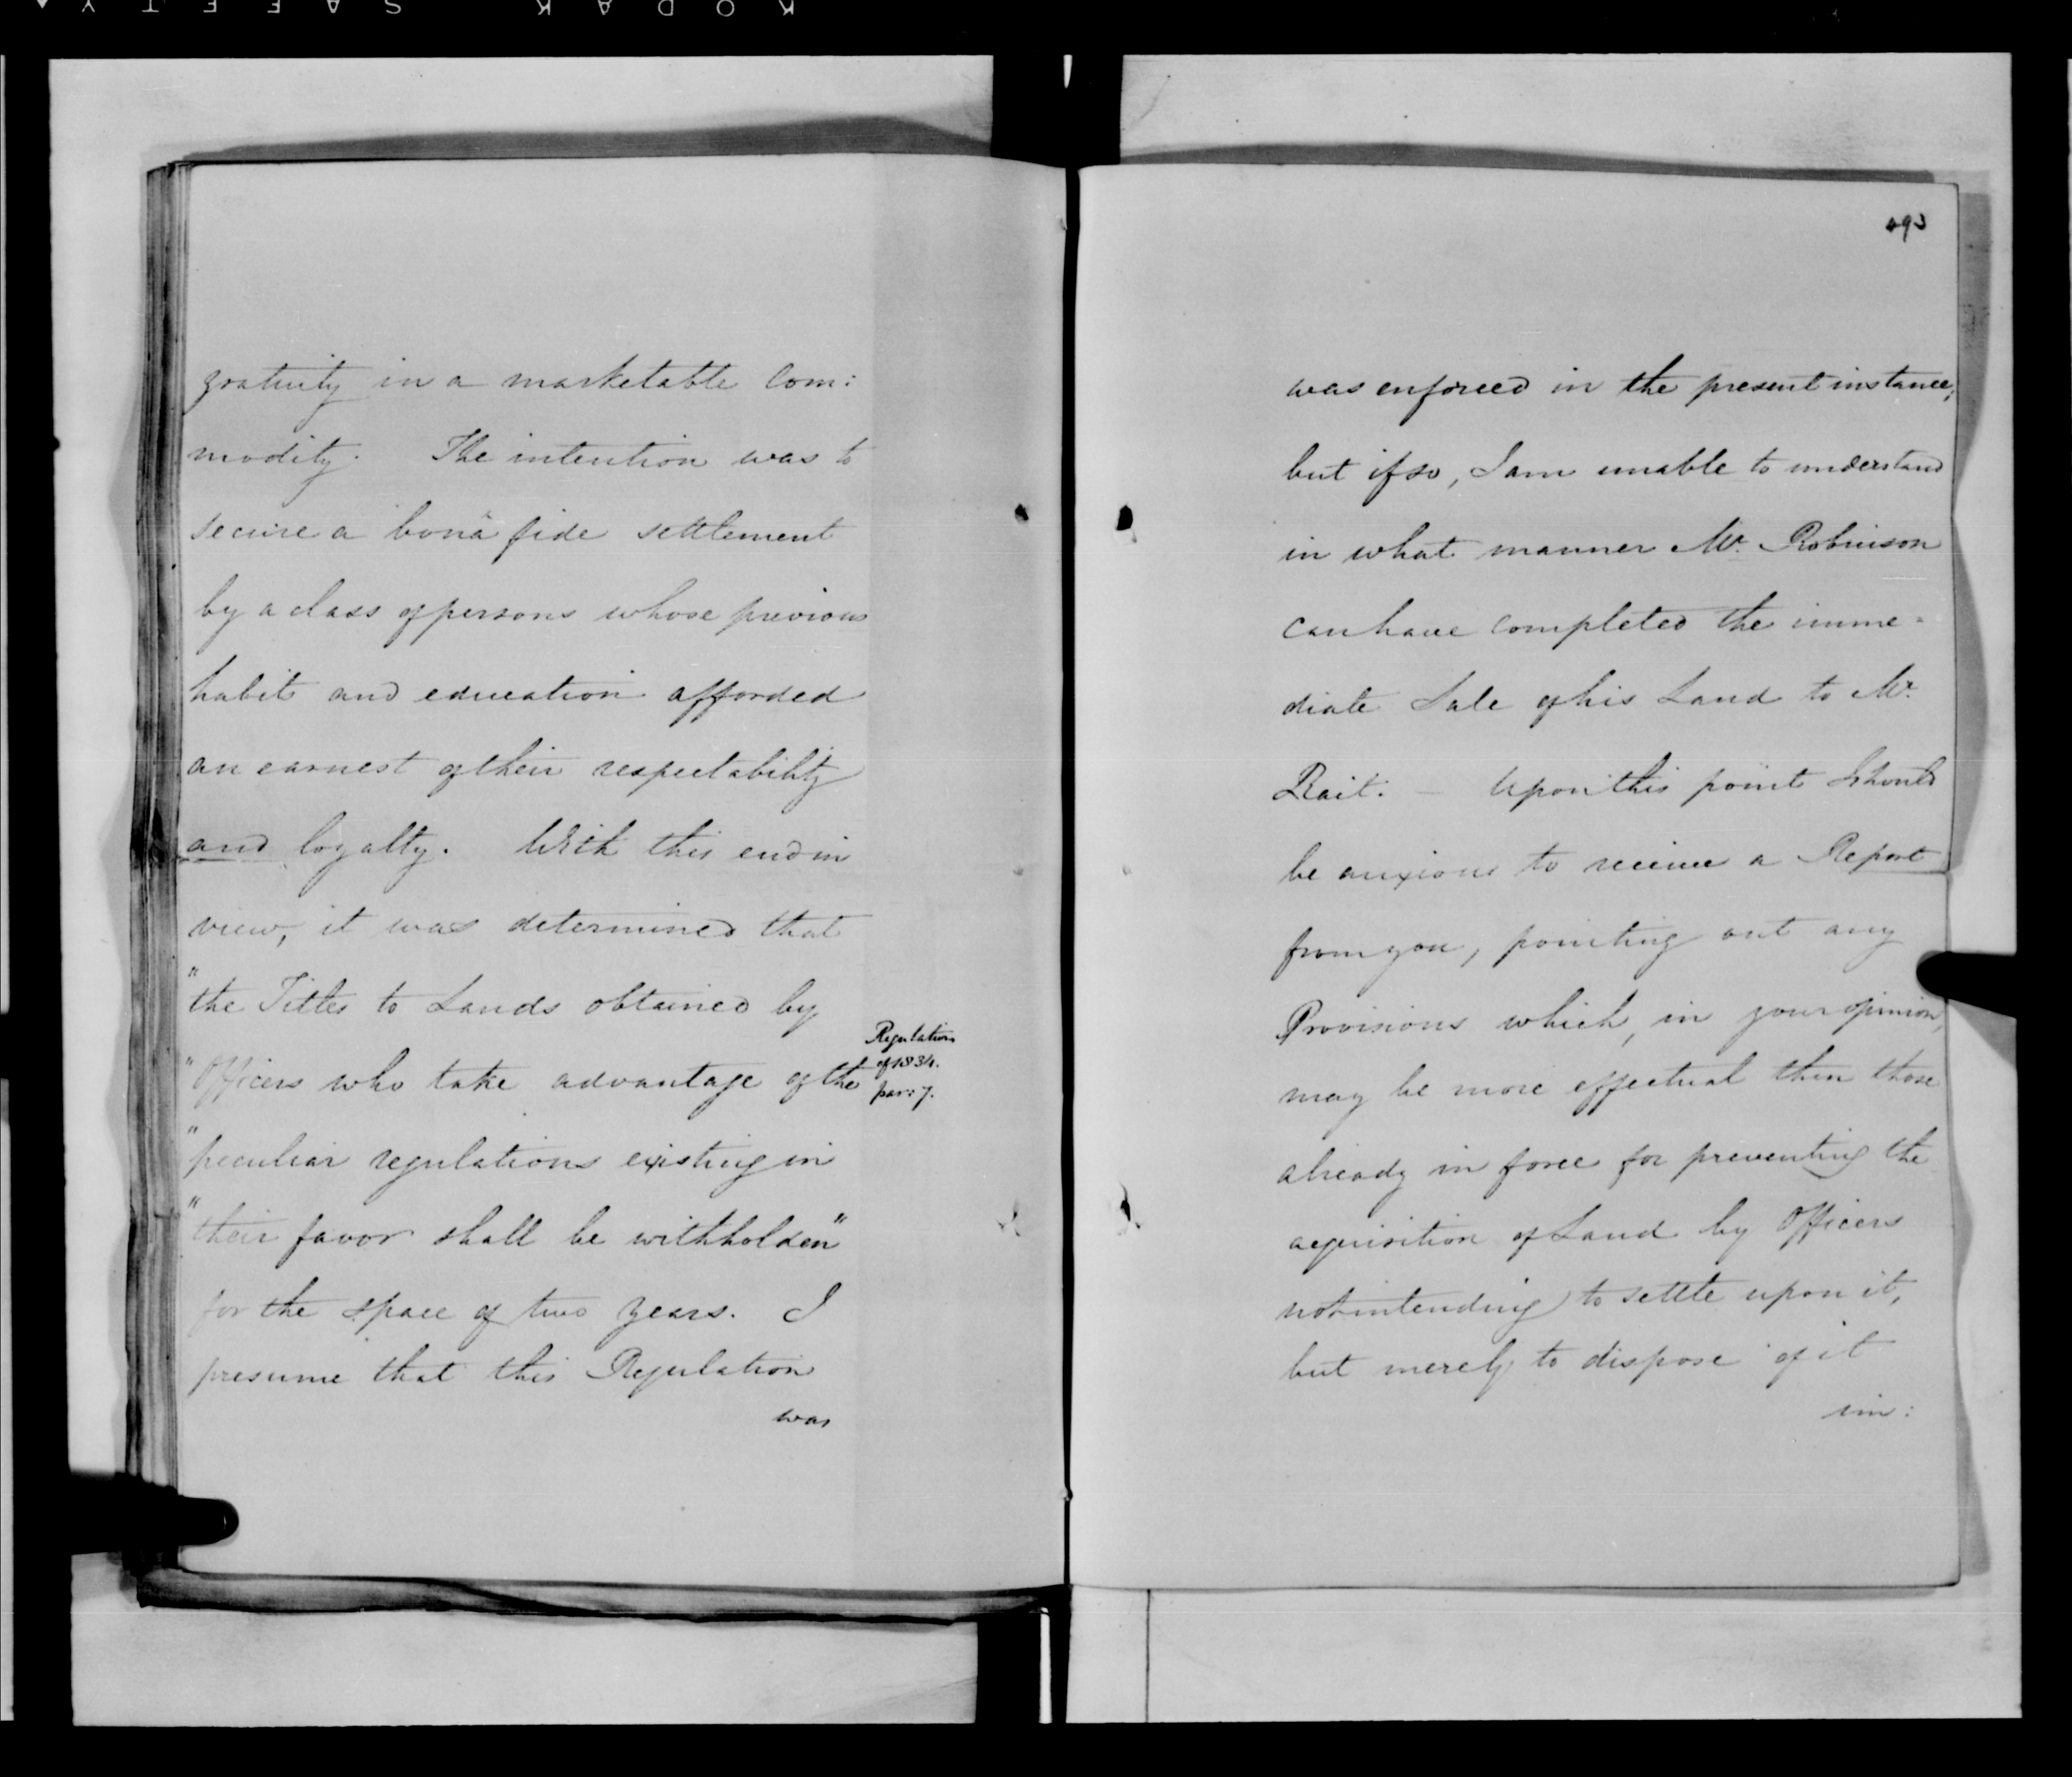 KODAK SAFETY
gratuity in a marketable Com:
modity. The intention was to
secure a bonâ fide settlement
by a class of persons whose previous
habits and education afforded
an earnest of their respectability
and loyalty. With this end in
view, it was determined that
"the Titles to Lands obtained by
"Officers who take advantage of the
"peculiar regulations existing in
"their favor shall be withholden"
for the space of two years. I
presume that this Regulation
was
Regulations
of 1834.
par: 7.
was enforced in the present instance;
but if so, I am unable to understand
in what manner Mr. Robinson
can have completed the imme=
diate Sale of his Land to Mr.
Rait. — Upon this point I should
be anxious to receive a Report
from you, pointing out any
Provisions which, in your opinion,
may be more effectual then those
already in force for preventing the
acquisition of Land by Officers
not intending to settle upon it,
but merely to dispose of it
im: